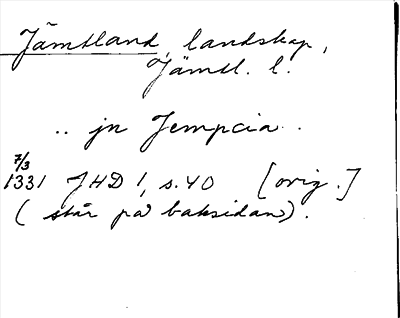 Jämtland, landskap,
Jämtl. l.
.. jn Jempcia ..
7/3
1331 JHD 1, s. 40 [orig.]
(står på baksidan).